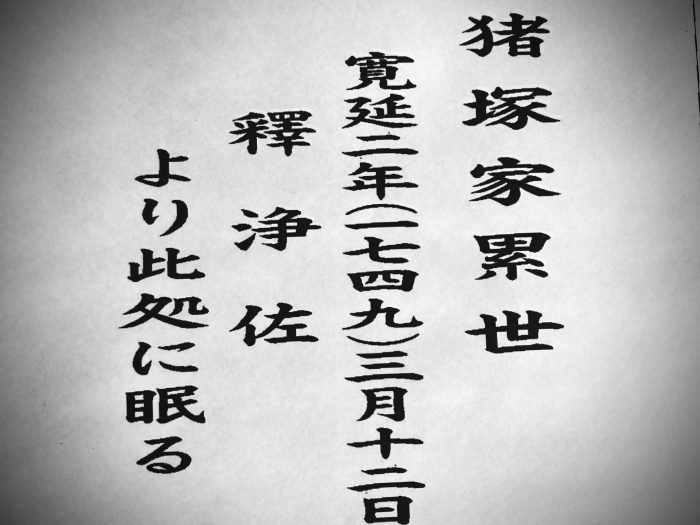 猪塚家累世
寛延二年(一七四九)三月十二日
釋浄佐
より此処に眠る